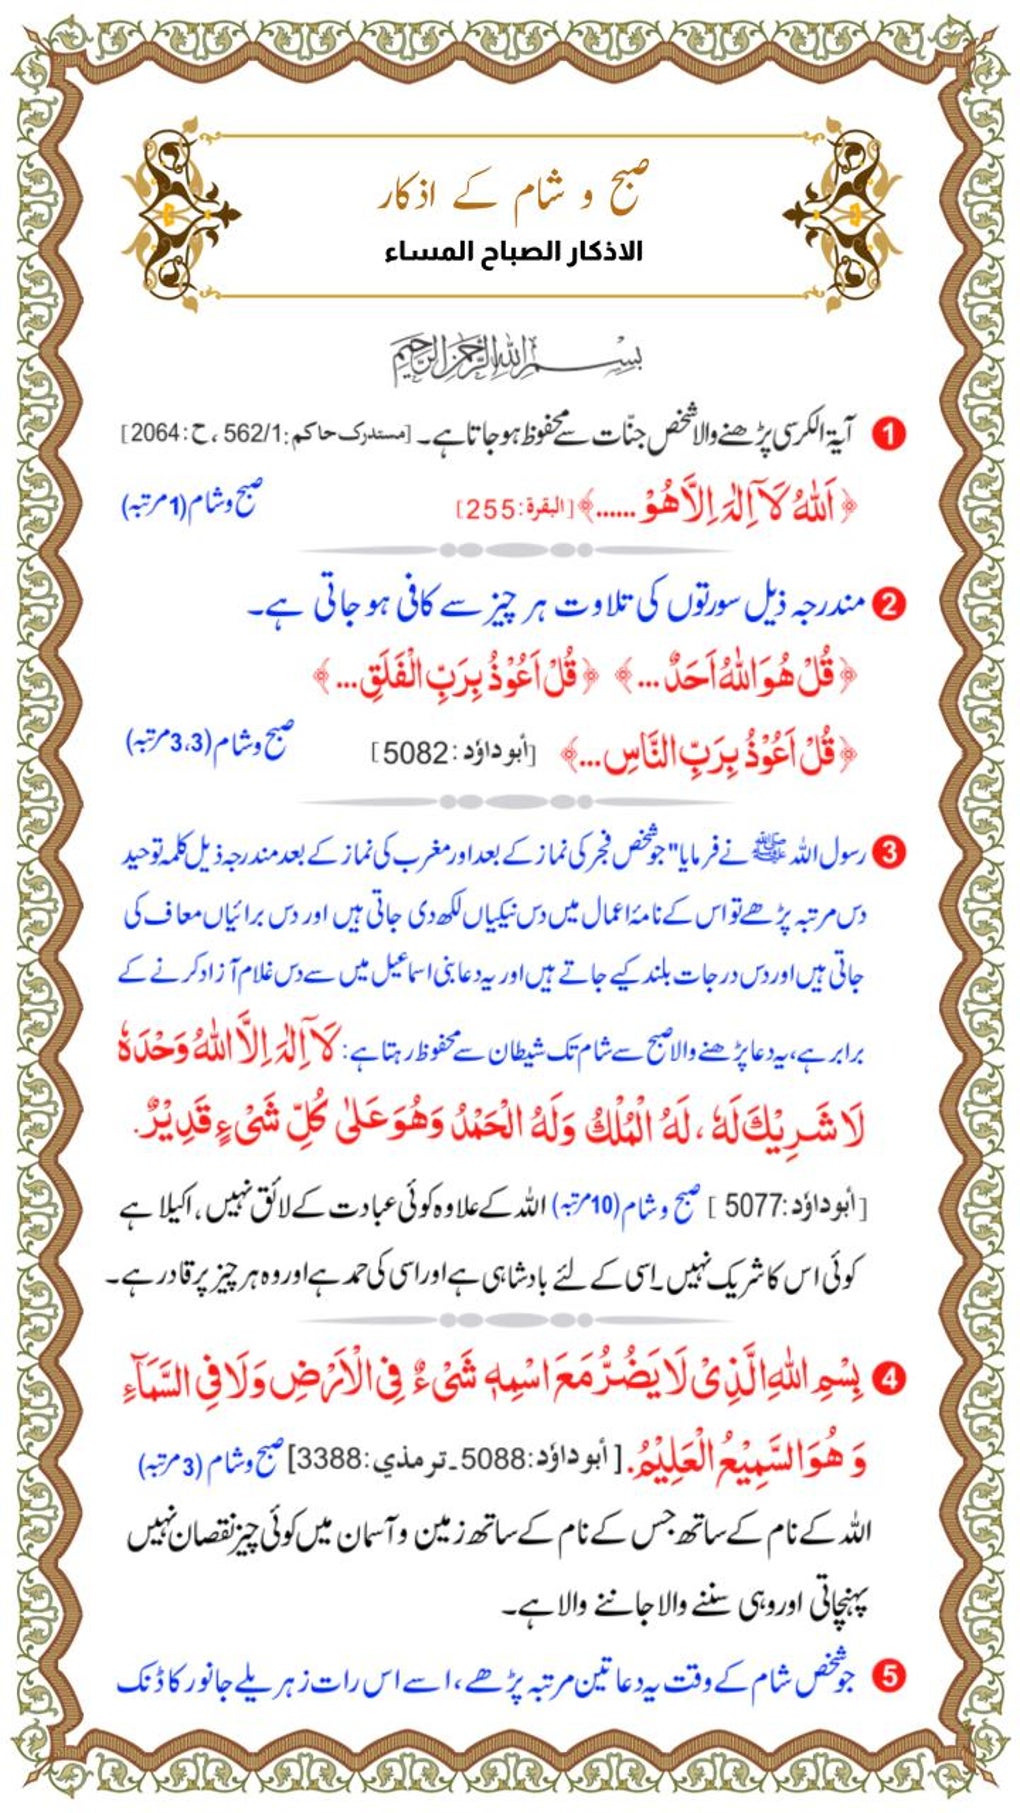 صبح و شام کے اذکار
الاذكار الصباح المساء
بسم الله الرحمن الرحیم
1 آیۃ الکرسی پڑھنے والا شخص جنّات سے محفوظ ہو جاتا ہے۔ [مستدرک حاکم: 562/1، ح: 2064]
﴿اَللّٰهُ لَآ اِلٰهَ اِلَّا هُوَ ......﴾ [البقرة: 255] صبح و شام (1 مرتبہ)
2 مندرجہ ذیل سورتوں کی تلاوت ہر چیز سے کافی ہو جاتی ہے۔
﴿قُلْ هُوَ اللّٰهُ اَحَدٌ ...﴾ ﴿قُلْ اَعُوْذُ بِرَبِّ الْفَلَقِ ...﴾
﴿قُلْ اَعُوْذُ بِرَبِّ النَّاسِ ...﴾ [أبو داؤد: 5082] صبح و شام (3،3 مرتبہ)
3 رسول اللہ ﷺ نے فرمایا "جو شخص فجر کی نماز کے بعد اور مغرب کی نماز کے بعد مندرجہ ذیل کلمہ توحید
دس مرتبہ پڑھے تو اس کے نامۂ اعمال میں دس نیکیاں لکھ دی جاتی ہیں اور دس برائیاں معاف کی
جاتی ہیں اور دس درجات بلند کیے جاتے ہیں اور یہ دعا بنی اسماعیل میں سے دس غلام آزاد کرنے کے
برابر ہے، یہ دعا پڑھنے والا صبح سے شام تک شیطان سے محفوظ رہتا ہے: لَآ اِلٰهَ اِلَّا اللّٰهُ وَحْدَهٗ
لَا شَرِيْكَ لَهٗ، لَهُ الْمُلْكُ وَلَهُ الْحَمْدُ وَهُوَ عَلٰى كُلِّ شَىْءٍ قَدِيْرٌ.
[أبو داؤد: 5077] صبح و شام (10 مرتبہ) اللہ کے علاوہ کوئی عبادت کے لائق نہیں، اکیلا ہے
کوئی اس کا شریک نہیں۔ اسی کے لئے بادشاہی ہے اور اسی کی حمد ہے اور وہ ہر چیز پر قادر ہے۔
4 بِسْمِ اللّٰهِ الَّذِىْ لَا يَضُرُّ مَعَ اسْمِهٖ شَىْءٌ فِى الْاَرْضِ وَلَا فِى السَّمَآءِ
وَ هُوَ السَّمِيْعُ الْعَلِيْمُ. [أبو داؤد: 5088۔ ترمذي: 3388] صبح و شام (3 مرتبہ)
اللہ کے نام کے ساتھ جس کے نام کے ساتھ زمین و آسمان میں کوئی چیز نقصان نہیں
پہنچاتی اور وہی سننے والا جاننے والا ہے۔
5 جو شخص شام کے وقت یہ دعا تین مرتبہ پڑھے، اسے اس رات زہریلے جانور کا ڈنک